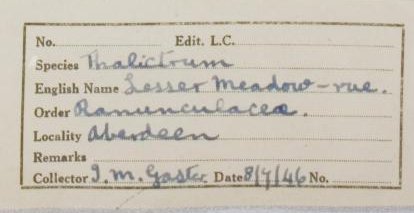 No. Edit. L.C.
Species Thalictrum
English Name Lesser Meadow-rue.
Order Ranunculaceæ.
Locality Aberdeen
Remarks
Collector I. M. Gaster Date 8/7/46 No.